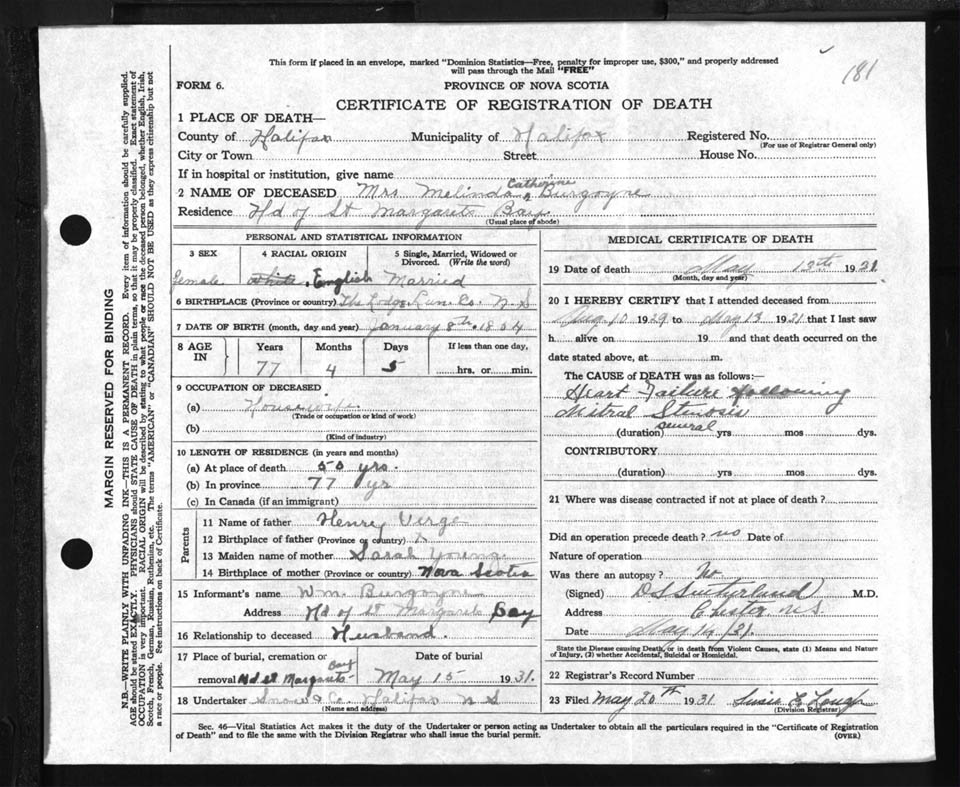 This form if placed in an envelope, marked "Dominion Statistics—Free, penalty for improper use, $300," and properly addressed
will pass through the Mail "FREE"
181
FORM 6.
PROVINCE OF NOVA SCOTIA
CERTIFICATE OF REGISTRATION OF DEATH
1 PLACE OF DEATH—
County of Halifax Municipality of Halifax Registered No.
(For use of Registrar General only)
City or Town Street House No.
If in hospital or institution, give name
Catherine
2 NAME OF DECEASED Mrs Melinda Burgoyne
Residence Hd of St Margarets Bay
(Usual place of abode)
PERSONAL AND STATISTICAL INFORMATION
3 SEX 4 RACIAL ORIGIN 5 Single, Married, Widowed or Divorced. (Write the word)
female white English Married
6 BIRTHPLACE (Province or country) The Lodge Lun. Co. N.S
7 DATE OF BIRTH (month, day and year) January 8th 1854
8 AGE IN Years Months Days If less than one day,
77 4 5 hrs. or min.
9 OCCUPATION OF DECEASED
(a) Housewife
(Trade or occupation or kind of work)
(b)
(Kind of industry)
10 LENGTH OF RESIDENCE (in years and months)
(a) At place of death 50 yrs.
(b) In province 77 yr
(c) In Canada (if an immigrant)
Parents
11 Name of father Henry Verge
12 Birthplace of father (Province or country)
13 Maiden name of mother Sarah Young
14 Birthplace of mother (Province or country) Nova Scotia
15 Informant's name Wm. Burgoyne
Address Hd of St Margarets Bay
16 Relationship to deceased Husband.
17 Place of burial, cremation or removal Hd St Margarets Bay Date of burial May 15 1931.
18 Undertaker Snow & Co Halifax N S
(Name and address)
MEDICAL CERTIFICATE OF DEATH
19 Date of death May 13th 1931
(Month, day and year)
20 I HEREBY CERTIFY that I attended deceased from
Aug 10 1929 to May 13 1931 that I last saw
h alive on 19 and that death occurred on the
date stated above, at m.
The CAUSE of DEATH was as follows:—
Heart Failure following
Mitral Stenosis
(duration) several yrs mos dys.
CONTRIBUTORY
(duration) yrs mos dys.
21 Where was disease contracted if not at place of death?
Did an operation precede death? no Date of
Nature of operation
Was there an autopsy? No
(Signed) D S Sutherland M.D.
Address Chester N S
Date May 14/31.
State the Disease causing Death, or in death from Violent Causes, state (1) Means and Nature
of Injury, (2) whether Accidental, Suicidal or Homicidal.
22 Registrar's Record Number
23 Filed May 20th 1931
(Division Registrar)
Sec. 46—Vital Statistics Act makes it the duty of the Undertaker or person acting as Undertaker to obtain all the particulars required in the "Certificate of Registration
of Death" and to file the same with the Division Registrar who shall issue the burial permit.
(OVER)
MARGIN RESERVED FOR BINDING
N.B.—WRITE PLAINLY WITH UNFADING INK—THIS IS A PERMANENT RECORD. Every item of information should be carefully supplied.
AGE should be stated EXACTLY. PHYSICIANS should STATE CAUSE OF DEATH in plain terms, so that it may be properly classified. Exact statement of
OCCUPATION is very important. RACIAL ORIGIN will be described by stating to what people or race the deceased person belonged, whether English, Irish,
Scotch, French, German, Russian, Ruthenian, etc. The terms "AMERICAN" or "CANADIAN" SHOULD NOT BE USED as they express citizenship but not
a race or people. See instructions on back of Certificate.